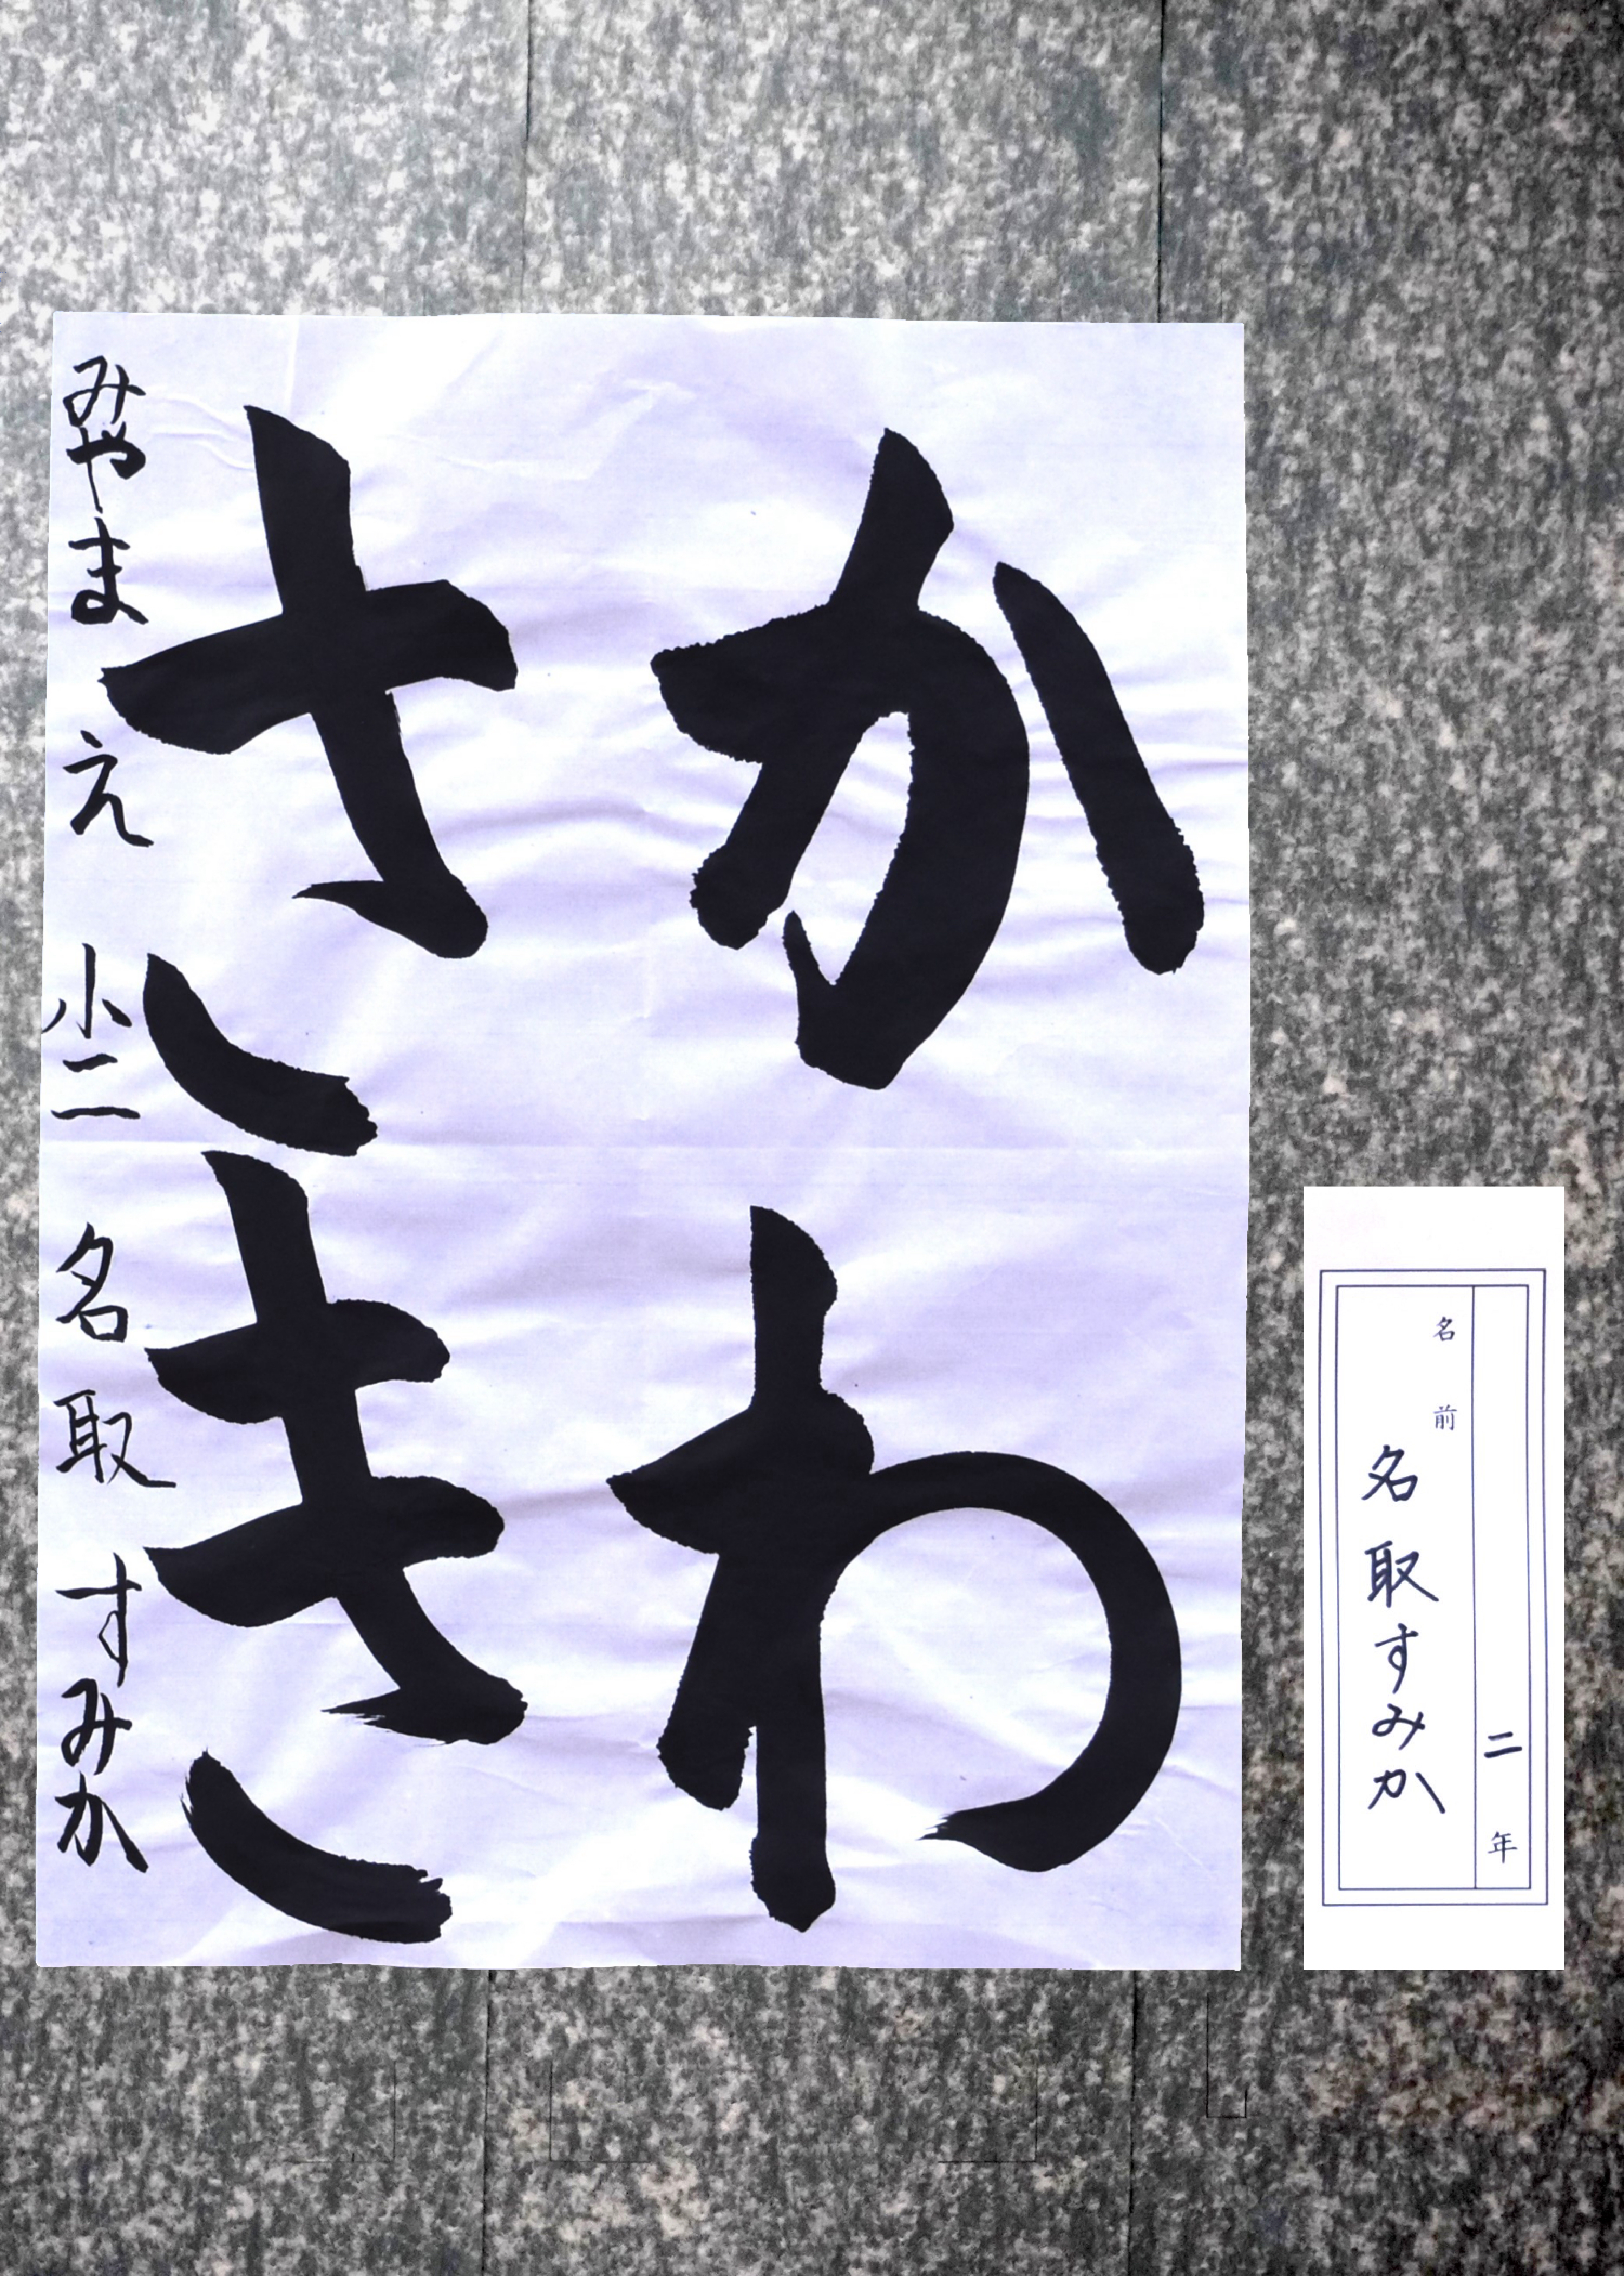 かわ
さき
みやまえ 小二 名取すみか
二年
名前
名取すみか